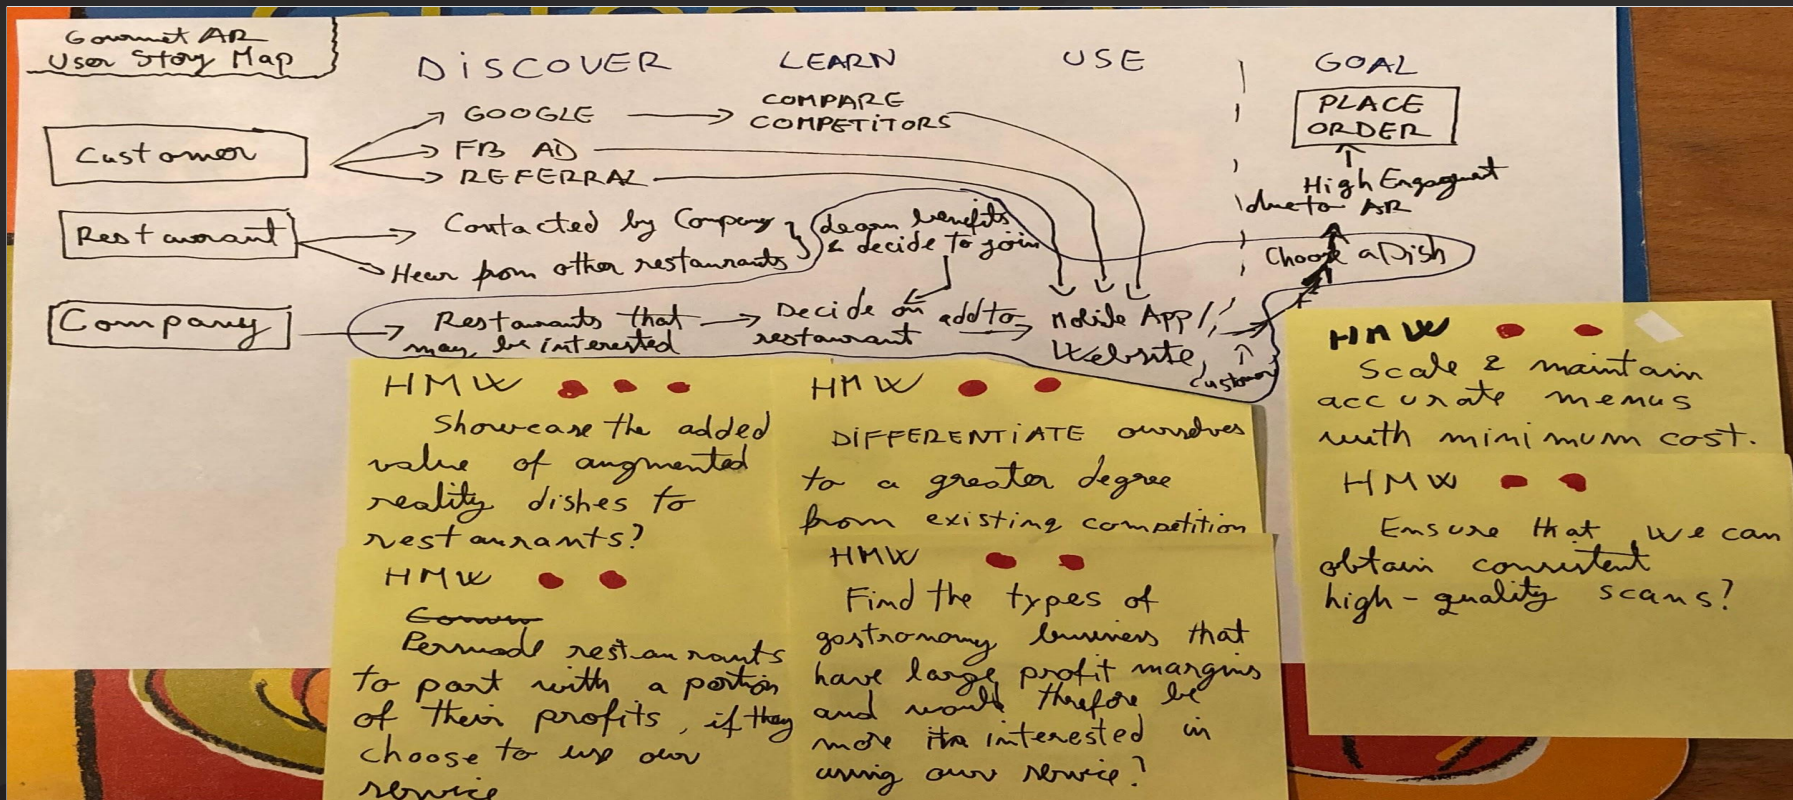 Gourmet AR
User Story Map
DISCOVER
LEARN
USE
GOAL
Customer
GOOGLE
COMPARE
COMPETITORS
FB AD
REFERRAL
PLACE
ORDER
High Engagement
due to AR
Restaurant
Contacted by Company
Hear from other restaurants
Learn benefits
& decide to join
Choose a Dish
Company
Restaurants that
may be interested
Decide on
restaurant
add to
Mobile App/
Website
customer
HMW
Showcase the added
value of augmented
reality dishes to
restaurants?
HMW
DIFFERENTIATE ourselves
to a greater degree
from existing competition
HMW
Scale & maintain
accurate menus
with minimum cost.
HMW
Persuade restaurants
to part with a portion
of their profits, if they
choose to use our
service
HMW
Find the types of
gastronomy business that
have large profit margins
and would therefore be
more interested in
using our service?
HMW
Ensure that we can
obtain consistent
high-quality scans?